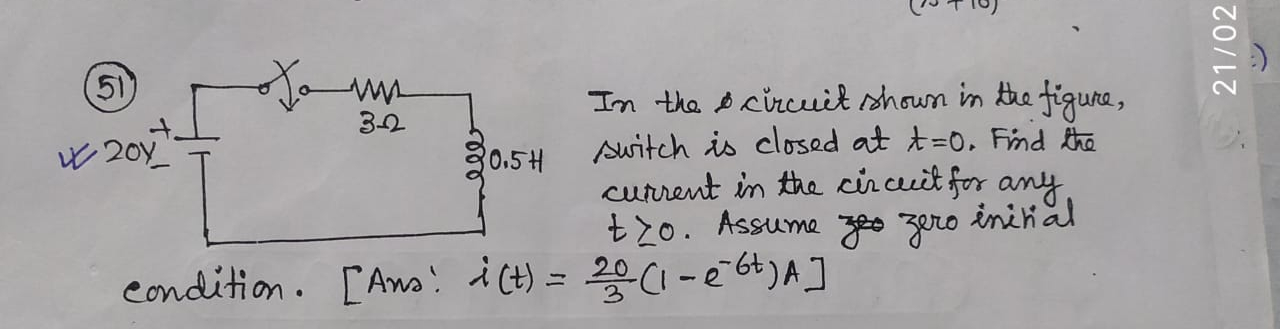 (51)
+
20V
-
3Ω
0.5H
In the circuit shown in the figure,
switch is closed at t=0. Find the
current in the circuit for any
t≥0. Assume zero initial
condition. [Ans: i(t) = 20/3 (1-e^-6t)A]
21/02